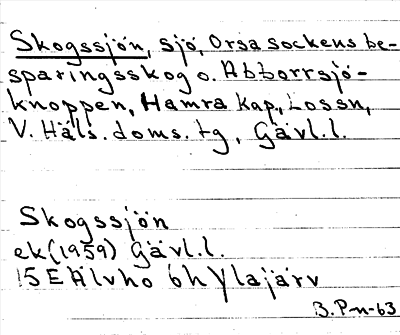 Skogssjön, sjö, Orsa sockens be-
sparingsskog o. Abborrsjö-
knoppen, Hamra kap., Lossn,
V. Häls. doms. tg, Gävl.l.
Skogssjön
ek (1959) Gävl.l.
15E Älvho 6h Ylajärv
B.P-n-63